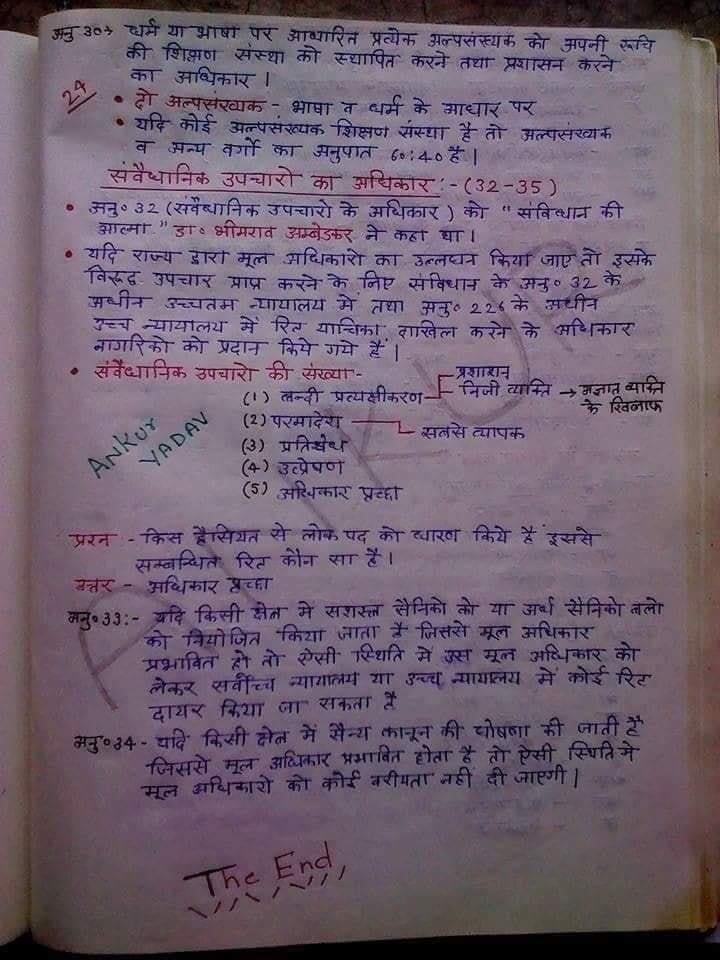 अनु 30→ धर्म या भाषा पर आधारित प्रत्येक अल्पसंख्यक को अपनी रूचि
की शिक्षण संस्था को स्थापित करने तथा प्रशासन करने
का अधिकार।
24
• दो अल्पसंख्यक - भाषा व धर्म के आधार पर
• यदि कोई अल्पसंख्यक शिक्षण संस्था है तो अल्पसंख्यक
व अन्य वर्गो का अनुपात 60:40 है।
संवैधानिक उपचारो का अधिकार :- (32-35)
• अनु॰ 32 (संवैधानिक उपचारो के अधिकार) को "संविधान की
आत्मा" डा॰ भीमराव अम्बेडकर ने कहा था।
• यदि राज्य द्वारा मूल अधिकारो का उल्लघन किया जाए तो इसके
विरूद्ध उपचार प्राप्त करने के लिए संविधान के अनु॰ 32 के
अधीन उच्चतम न्यायालय मे तथा अनु॰ 226 के अधीन
उच्च न्यायालय में रिट याचिका दाखिल करने के अधिकार
नागरिको को प्रदान किये गये है।
• संवैधानिक उपचारो की संख्या-
प्रशासन
(1) बन्दी प्रत्यक्षीकरण निजी व्यक्ति → अज्ञात व्यक्ति
के खिलाफ
(2) परमादेश सबसे व्यापक
(3) प्रतिषेध
(4) उत्प्रेषण
(5) अधिकार प्रच्छा
ANKUR
YADAV
प्रश्न - किस हैसियत से लोक पद को धारण किये है इससे
सम्बन्धित रिट कौन सा है।
उत्तर - अधिकार प्रच्छा
अनु॰33:- यदि किसी क्षेत्र मे सशस्त्र सैनिको को या अर्ध सैनिको बलो
को नियोजित किया जाता है जिससे मूल अधिकार
प्रभावित हो तो ऐसी स्थिति मे उस मूल अधिकार को
लेकर सर्वोच्च न्यायालय या उच्च न्यायालय में कोई रिट
दायर किया जा सकता है
अनु॰34- यदि किसी क्षेत्र में सैन्य कानून की घोषणा की जाती है
जिससे मूल अधिकार प्रभावित होता है तो ऐसी स्थिति मे
मूल अधिकारो को कोई वरीयता नही दी जाएगी।
The End